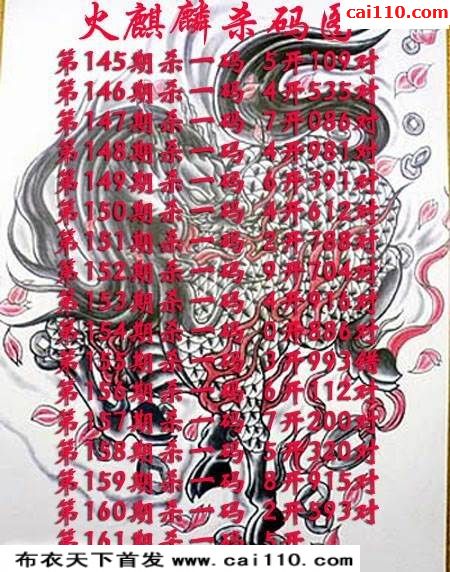 cai110.com
火麒麟杀码图
第145期杀一码 5开109对
第146期杀一码 4开535对
第147期杀一码 7开086对
第148期杀一码 4开981对
第149期杀一码 6开391对
第150期杀一码 4开612对
第151期杀一码 2开788对
第152期杀一码 9开704对
第153期杀一码 4开916对
第154期杀一码 0开886对
第155期杀一码 3开993错
第156期杀一码 6开112对
第157期杀一码 7开200对
第158期杀一码 5开320对
第159期杀一码 8开915对
第160期杀一码 2开593对
第161期杀一码 5开
布衣天下首发 www.cai110.com